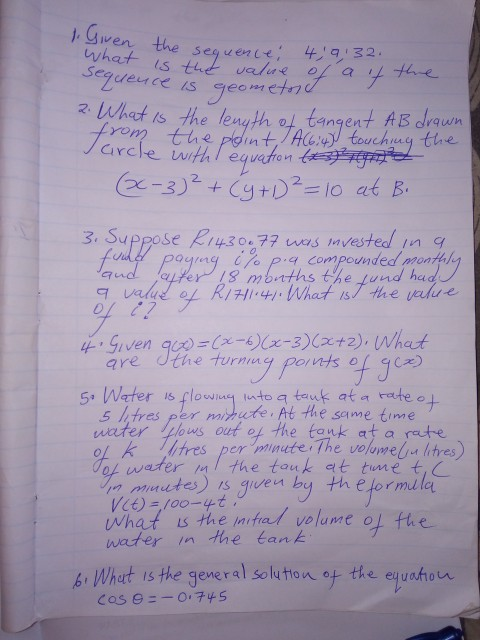 1. Given the sequence; 4; a; 32.
What is the value of a if the
sequence is geometric
2. What is the length of tangent AB drawn
from the point A(6;4) touching the
circle with equation
(x-3)² + (y+1)² = 10 at B.
3. Suppose R1430.77 was invested in a
fund paying i% p.a compounded monthly
and after 18 months the fund had
a value of R1711.41. What is the value
of i?
4. Given g(x) = (x-6)(x-3)(x+2). What
are the turning points of g(x)
5. Water is flowing into a tank at a rate of
5 litres per minute. At the same time
water flows out of the tank at a rate
of k litres per minute. The volume (in litres)
of water in the tank at time t, (
in minutes) is given by the formula
V(t) = 100-4t.
What is the initial volume of the
water in the tank
6. What is the general solution of the equation
cos θ = -0.745